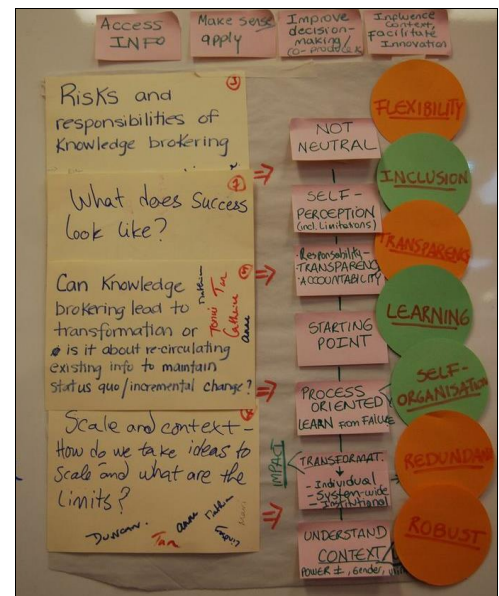 Access
INFO
Make sense
apply
Improve
decision-
making/
co-produce k
Influence
Context,
facilitate
Innovation
Risks and
responsibilities of
Knowledge brokering
What does Success
look like?
Can Knowledge
brokering lead to
transformation or
is it about re-circulating
existing info to maintain
status quo/incremental change?
Tim
Catherine
anne
Scale and context -
How do we take ideas to
Scale and what are the
limits?
Duncan.
Tim
anne
NOT
NEUTRAL
SELF-
PERCEPTION
(incl. Limitations)
- Responsability
- TRANSPARENC
- ACCOUNTABILITY
STARTING
POINT
PROCESS
ORIENTED
LEARN from FAILURE
IMPACT
TRANSFORMAT.
- Individual
- System-wide
- Institutional
UNDERSTAND
CONTEXT/
POWER ≠, Gender,
FLEXIBILITY
INCLUSION
TRANSPARENC
LEARNING
SELF-
ORGANISATION
REDUNDAN
ROBUST